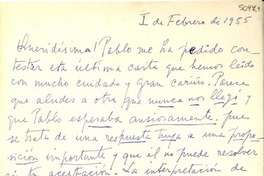 5097.1
I de Febrero de 1955
Queridísima! Pablo me ha pedido con-
testar esta última carta que hemos leído
con mucho cuidado y gran cariño. Parece
que aludes a otra que nunca nos llegó y
que Pablo esperaba ansiosamente, pues
se trata de una respuesta tuya a una propo-
sición importante y que él no puede resolver
sin tu aceptación. La interpretación de